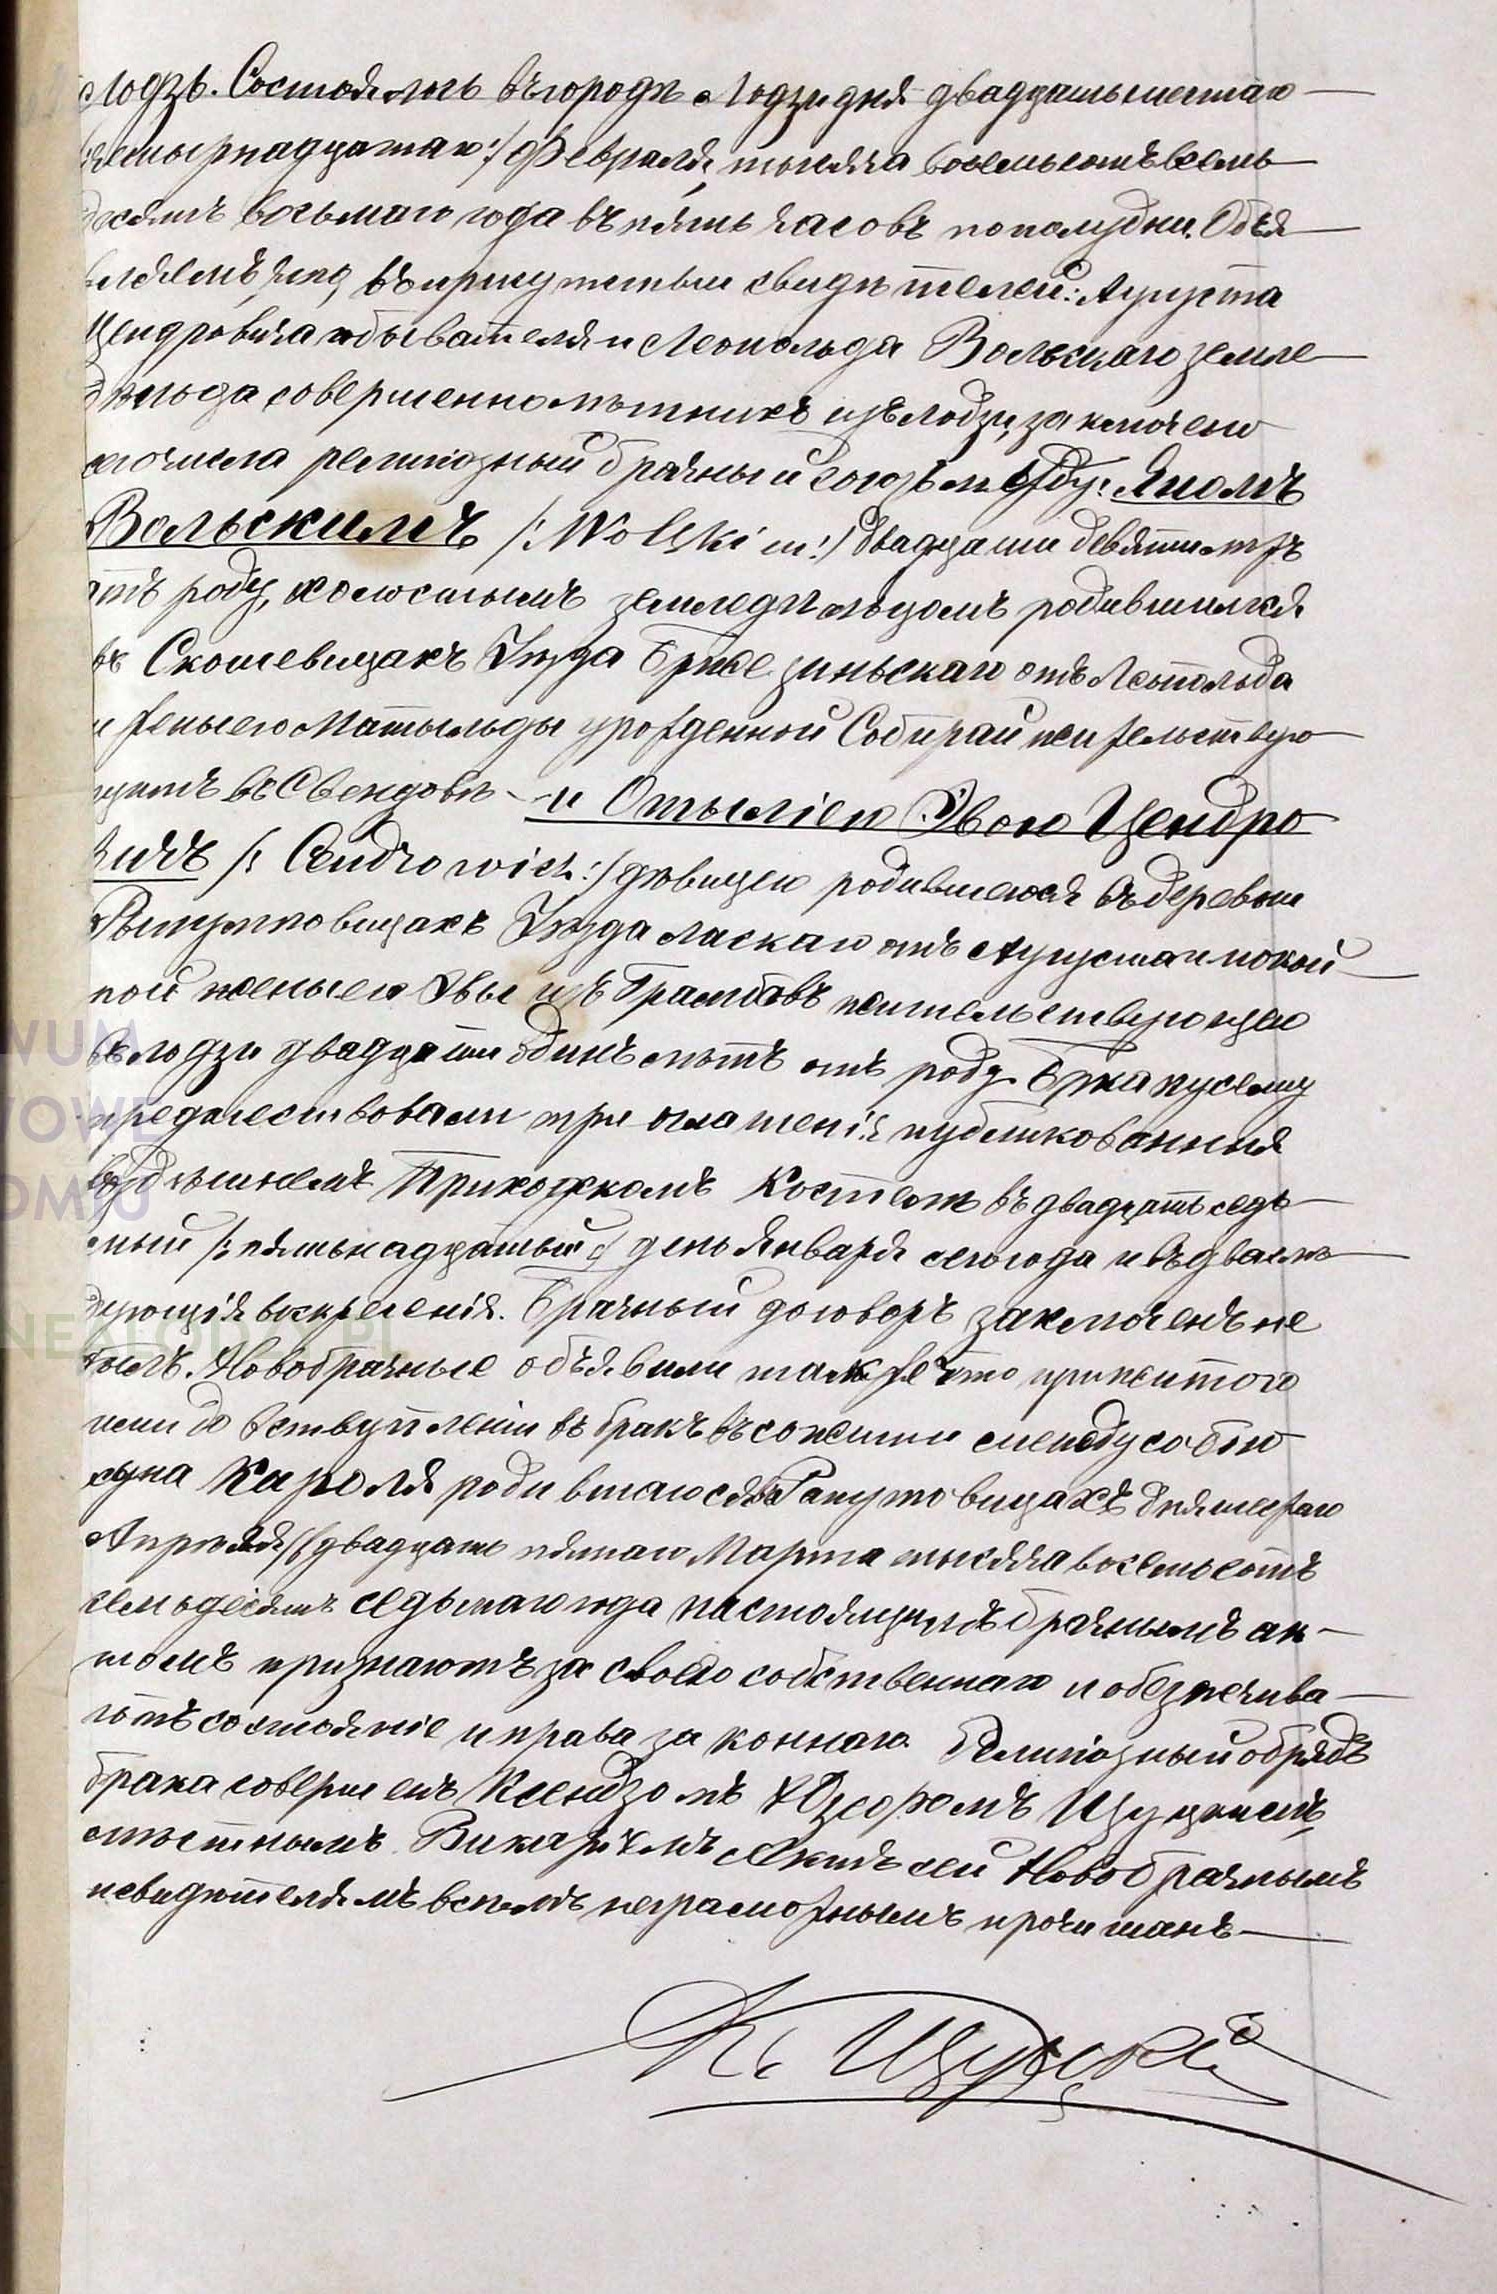 Лодзь. Состоялось въ городѣ Лодзи дня двадцать шестаго
/:четырнадцатаго:/ Февраля, тысяча восемьсотъ семь
десятъ восьмаго года въ пять часовъ пополудни. Объя
вляемъ, что, въ присутствіи свидѣтелей: Августа
Цендровича обывателя и Леопольда Вольскаго земле
дѣльца совершеннолѣтнихъ изъ Лодзи, заключенъ
сего числа религіозный брачный союзъ между: Яномъ
Вольскимъ /:Wolski m:/ двадцати девяти лѣтъ
отъ роду, холостымъ земледѣльцомъ родившимся
въ Скошевицахъ Уѣзда Бржезиньскаго отъ Леопольда
и жены его Матыльды урожденной Собирай жительствую
щимъ въ Свендовѣ и Отыліею Эвою Цендро
вичъ /: Cendrowicz:/ дѣвицею родившеюся въ деревни
Рыпултовицахъ Уѣзда Ласкаго отъ Августа и покой
ной жены его Эвы изъ жительствующею
въ Лодзи двадцати одинъ лѣтъ отъ роду. Браку сему
предшествовали три оглашенія публикованныя
въ здѣшнемъ Приходскомъ Костелѣ въ двадцать седь
мый /:пятьнадцатый:/ день Января сего года и въ два слѣ
дующія воскресенія. Брачный договоръ заключенъ не
былъ. Новобрачные объявили также что прижитого
ими до вступленія въ бракъ въ сожитіи между собою
сына Кароля родившагося въ дня шестаго
Апрѣля /:двадцать пятаго Марта тысяча восемьсотъ
семьдесятъ седьмаго года настоящимъ брачнымъ ак-
томъ признаютъ за своего собственнаго и обезпечива-
ютъ состояніе и права законнаго. Религіозный обрядъ
брака совершенъ Ксендзомъ Юзефомъ Щуцкимъ
мѣстнымъ Викаріемъ. Актъ сей Новобрачнымъ
и свидѣтелямъ всѣмъ неграмотнымъ прочитанъ
Кс Щуцкій
WUM
WOWE
OMIU
NEALODZY.PL